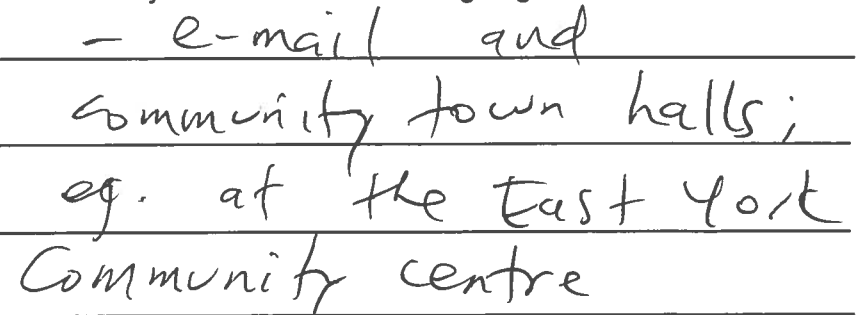 - e-mail and
community town halls;
eg. at the East York
Community centre